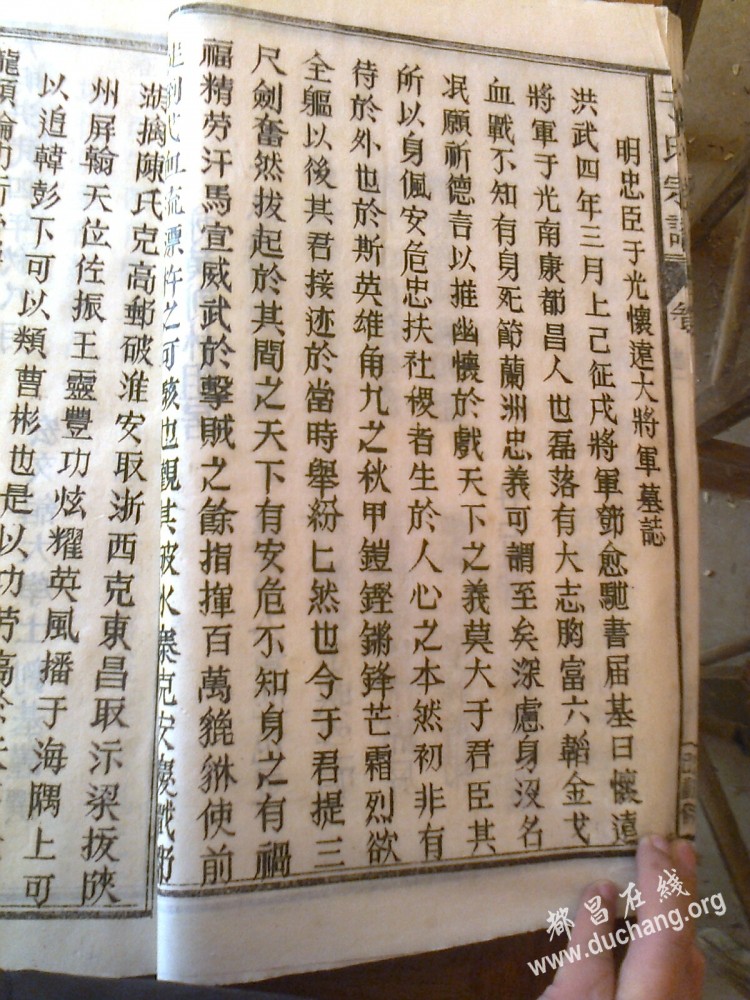 明忠臣于光懷遠大將軍墓誌
洪武四年三月上己征戌將軍鄧愈馳書届基曰懷遠
將軍于光南康都昌人也磊落有大志胸富六韜金戈
血戰不知有身死節蘭洲忠義可謂至矣深慮身没名
泯願祈德言以推幽懷於戲天下之義莫大于君臣其
所以身佩安危忠扶社稷者生於人心之本然初非有
待於外也於斯英雄角九之秋甲鎧鏗鏘鋒芒霜烈欲
全軀以後其君接迹於當時舉紛匕然也今于君提三
尺劍奮然拔起於其間之天下有安危不知身之有禍
福精勞汗馬宣威武於擊賊之餘指揮百萬貔貅使前
徒倒戈血流漂杵之可駭也觀其破水寨克安慶戰鄱
湖擒陳氏克高郵破淮安取浙西克東昌取汴梁拔陝
州屏翰天位佐振王靈豐功炫耀英風播于海隅上可
以追韓彭下可以類曹彬也是以功勞高於
龍頭論功行
于氏宗譜
都昌在线
www.duchang.org